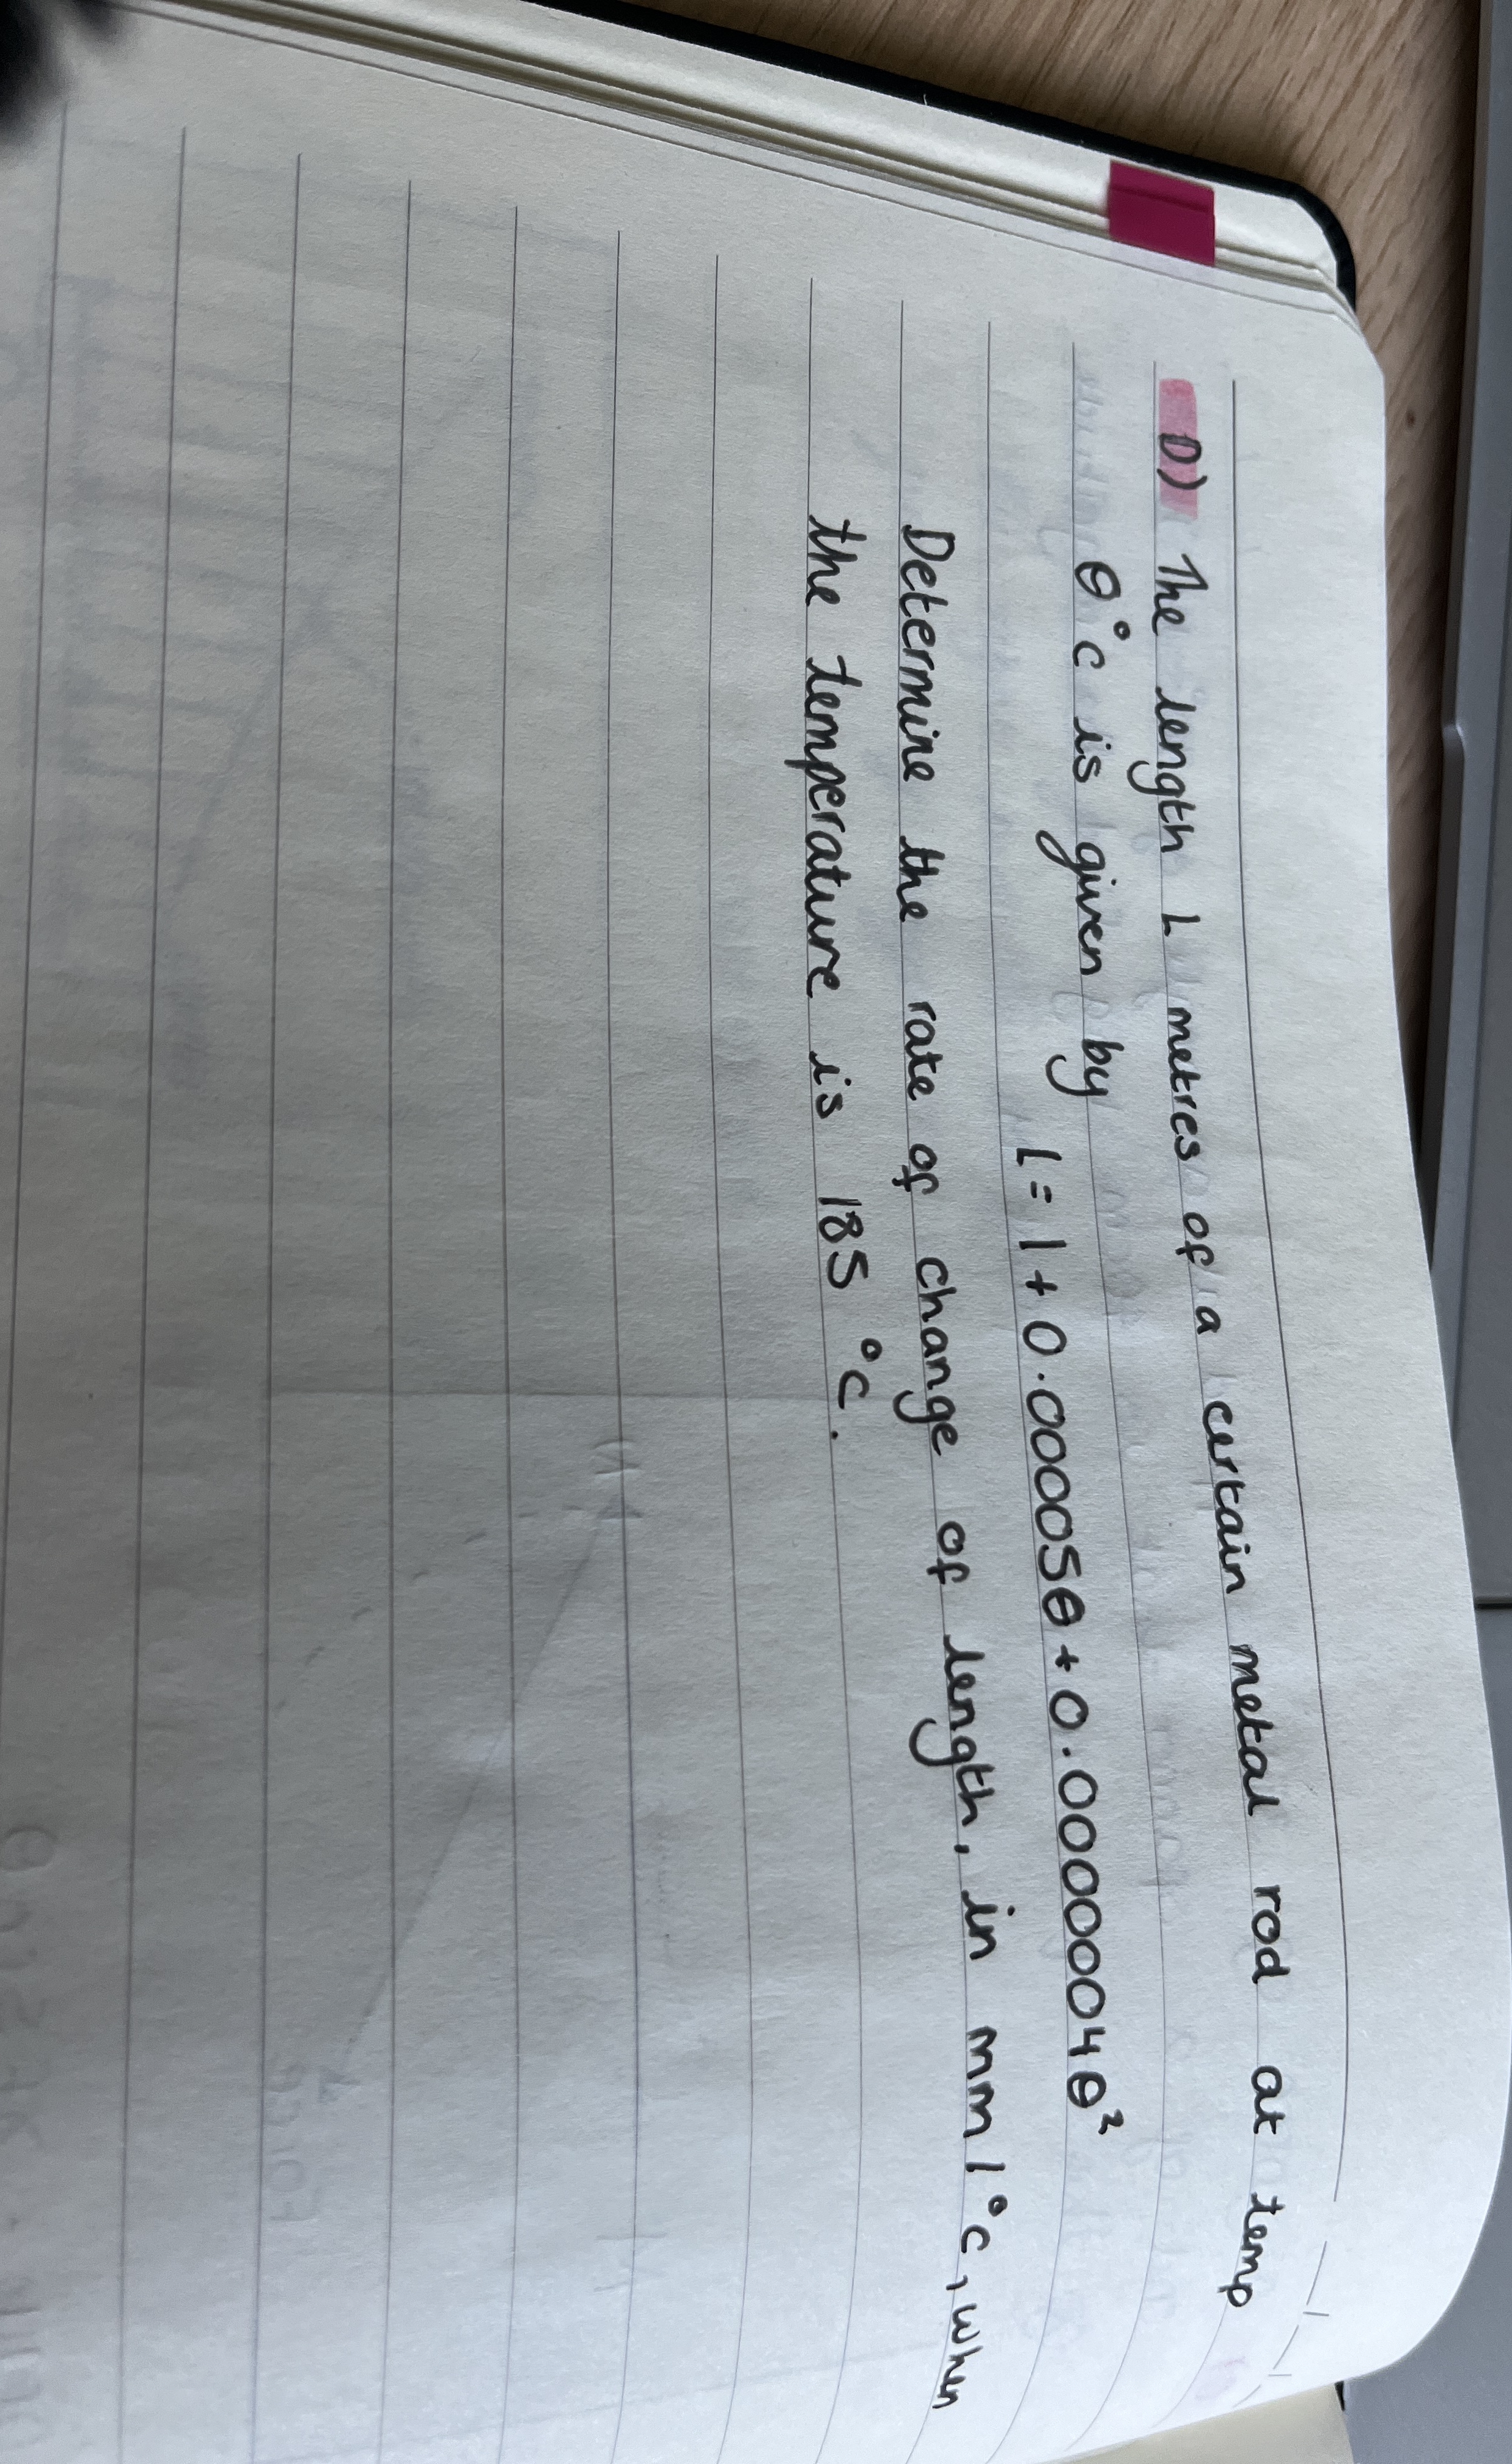 D) The length L metres of a certain metal rod at temp
θ°c is given by
L = 1 + 0.00005θ + 0.0000004θ²
Determine the rate of change of length, in mm/°c, when
the temperature is 185 °c.